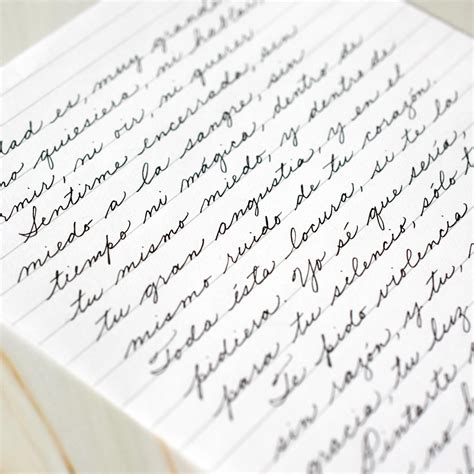 dad es, muy grand
no quisiera, ni hablar,
rmir, ni oir, ni querer
Sentirme encerrada, sin
miedo a la sangre, sin
tiempo ni mágica, dentro de
tu mismo miedo, y dentro de
tu gran angustia, y en el
mismo ruido de tu corazón.
Toda ésta locura, si te la
pidiera. Yo sé que sería,
para tu silencio, sólo t
Te pido violencia
sin razón, y tu,
gracia, tu luz
Pintarte
no h